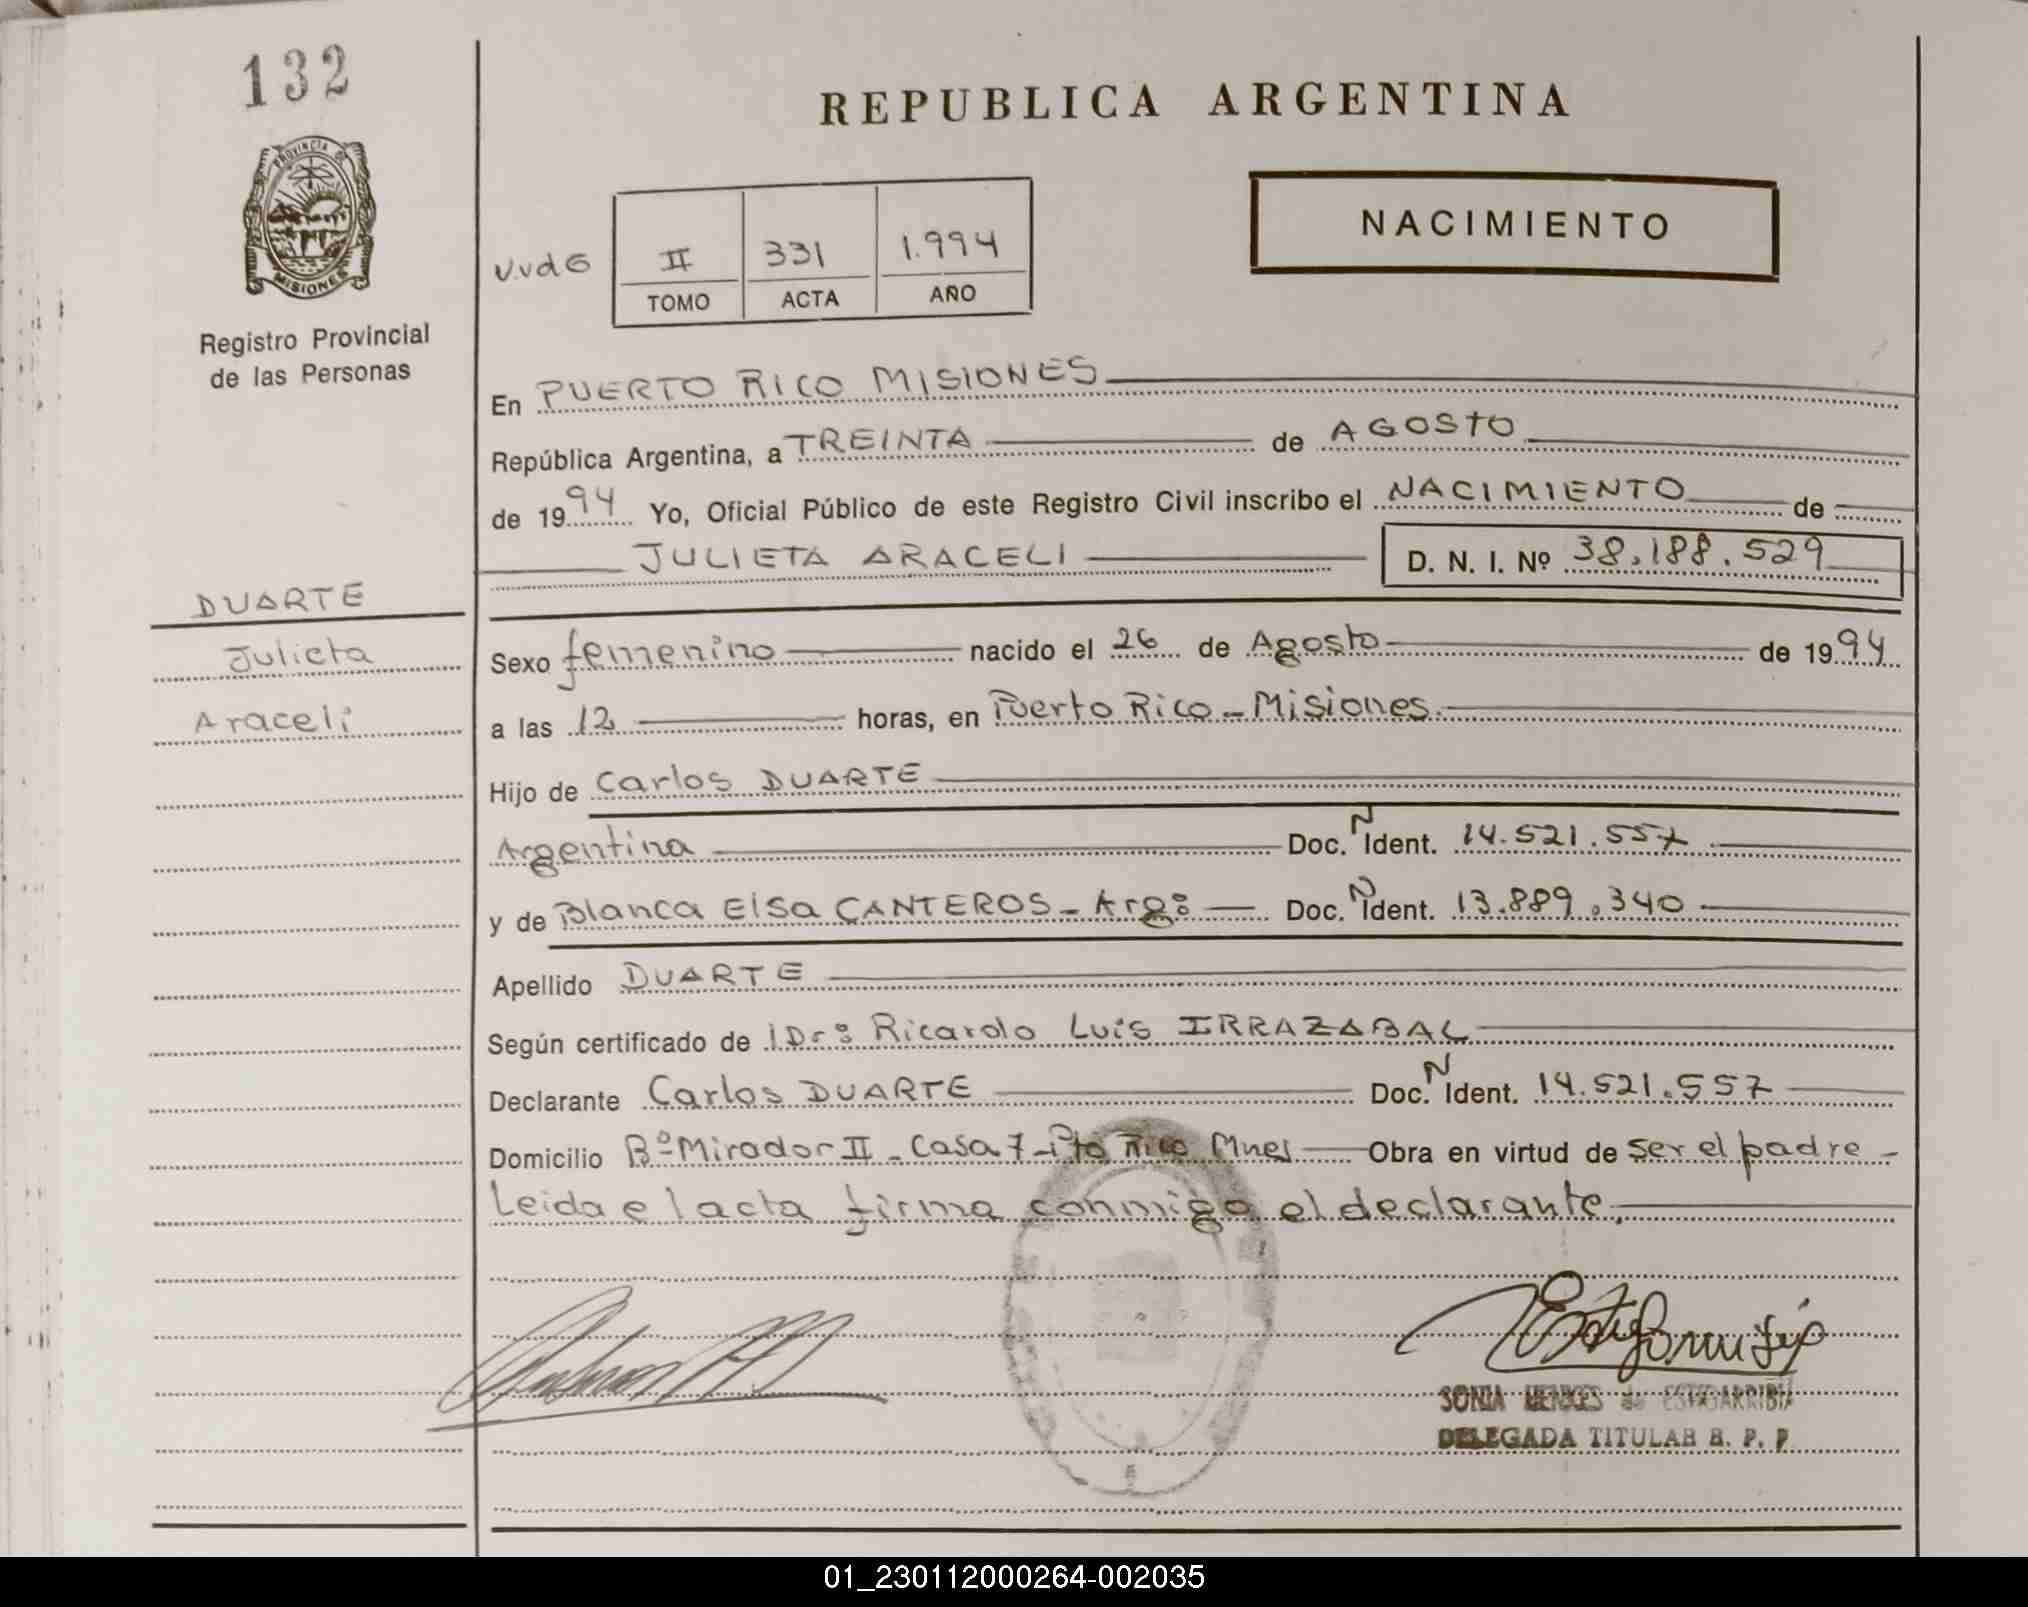 132
REPUBLICA ARGENTINA
PROVINCIA DE
MISIONES
NACIMIENTO
II 331 1.994
TOMO ACTA AÑO
Registro Provincial
de las Personas
En PUERTO RICO MISIONES
República Argentina, a TREINTA de AGOSTO
de 1994 Yo, Oficial Público de este Registro Civil inscribo el NACIMIENTO de
JULIETA ARACELI D. N. I. Nº 38.188.529
DUARTE
Julieta
Araceli
Sexo femenino nacido el 26 de Agosto de 1994
a las 12 horas, en Puerto Rico - Misiones.
Hijo de Carlos DUARTE
Argentina Doc. N Ident. 14.521.557
y de Blanca Elsa CANTEROS - Arg: Doc. N Ident. 13.889.340
Apellido DUARTE
Según certificado de Dr: Ricardo Luis IRRAZABAL
Declarante Carlos DUARTE Doc. N Ident. 14.521.557
Domicilio Bº Mirador II - Casa 7 - Pto Rico Mnes Obra en virtud de ser el padre -
Leida el acta firma conmigo el declarante.
SONIA de ESTIGARRIBIA
DELEGADA TITULAR R. P. P.
01_230112000264-002035